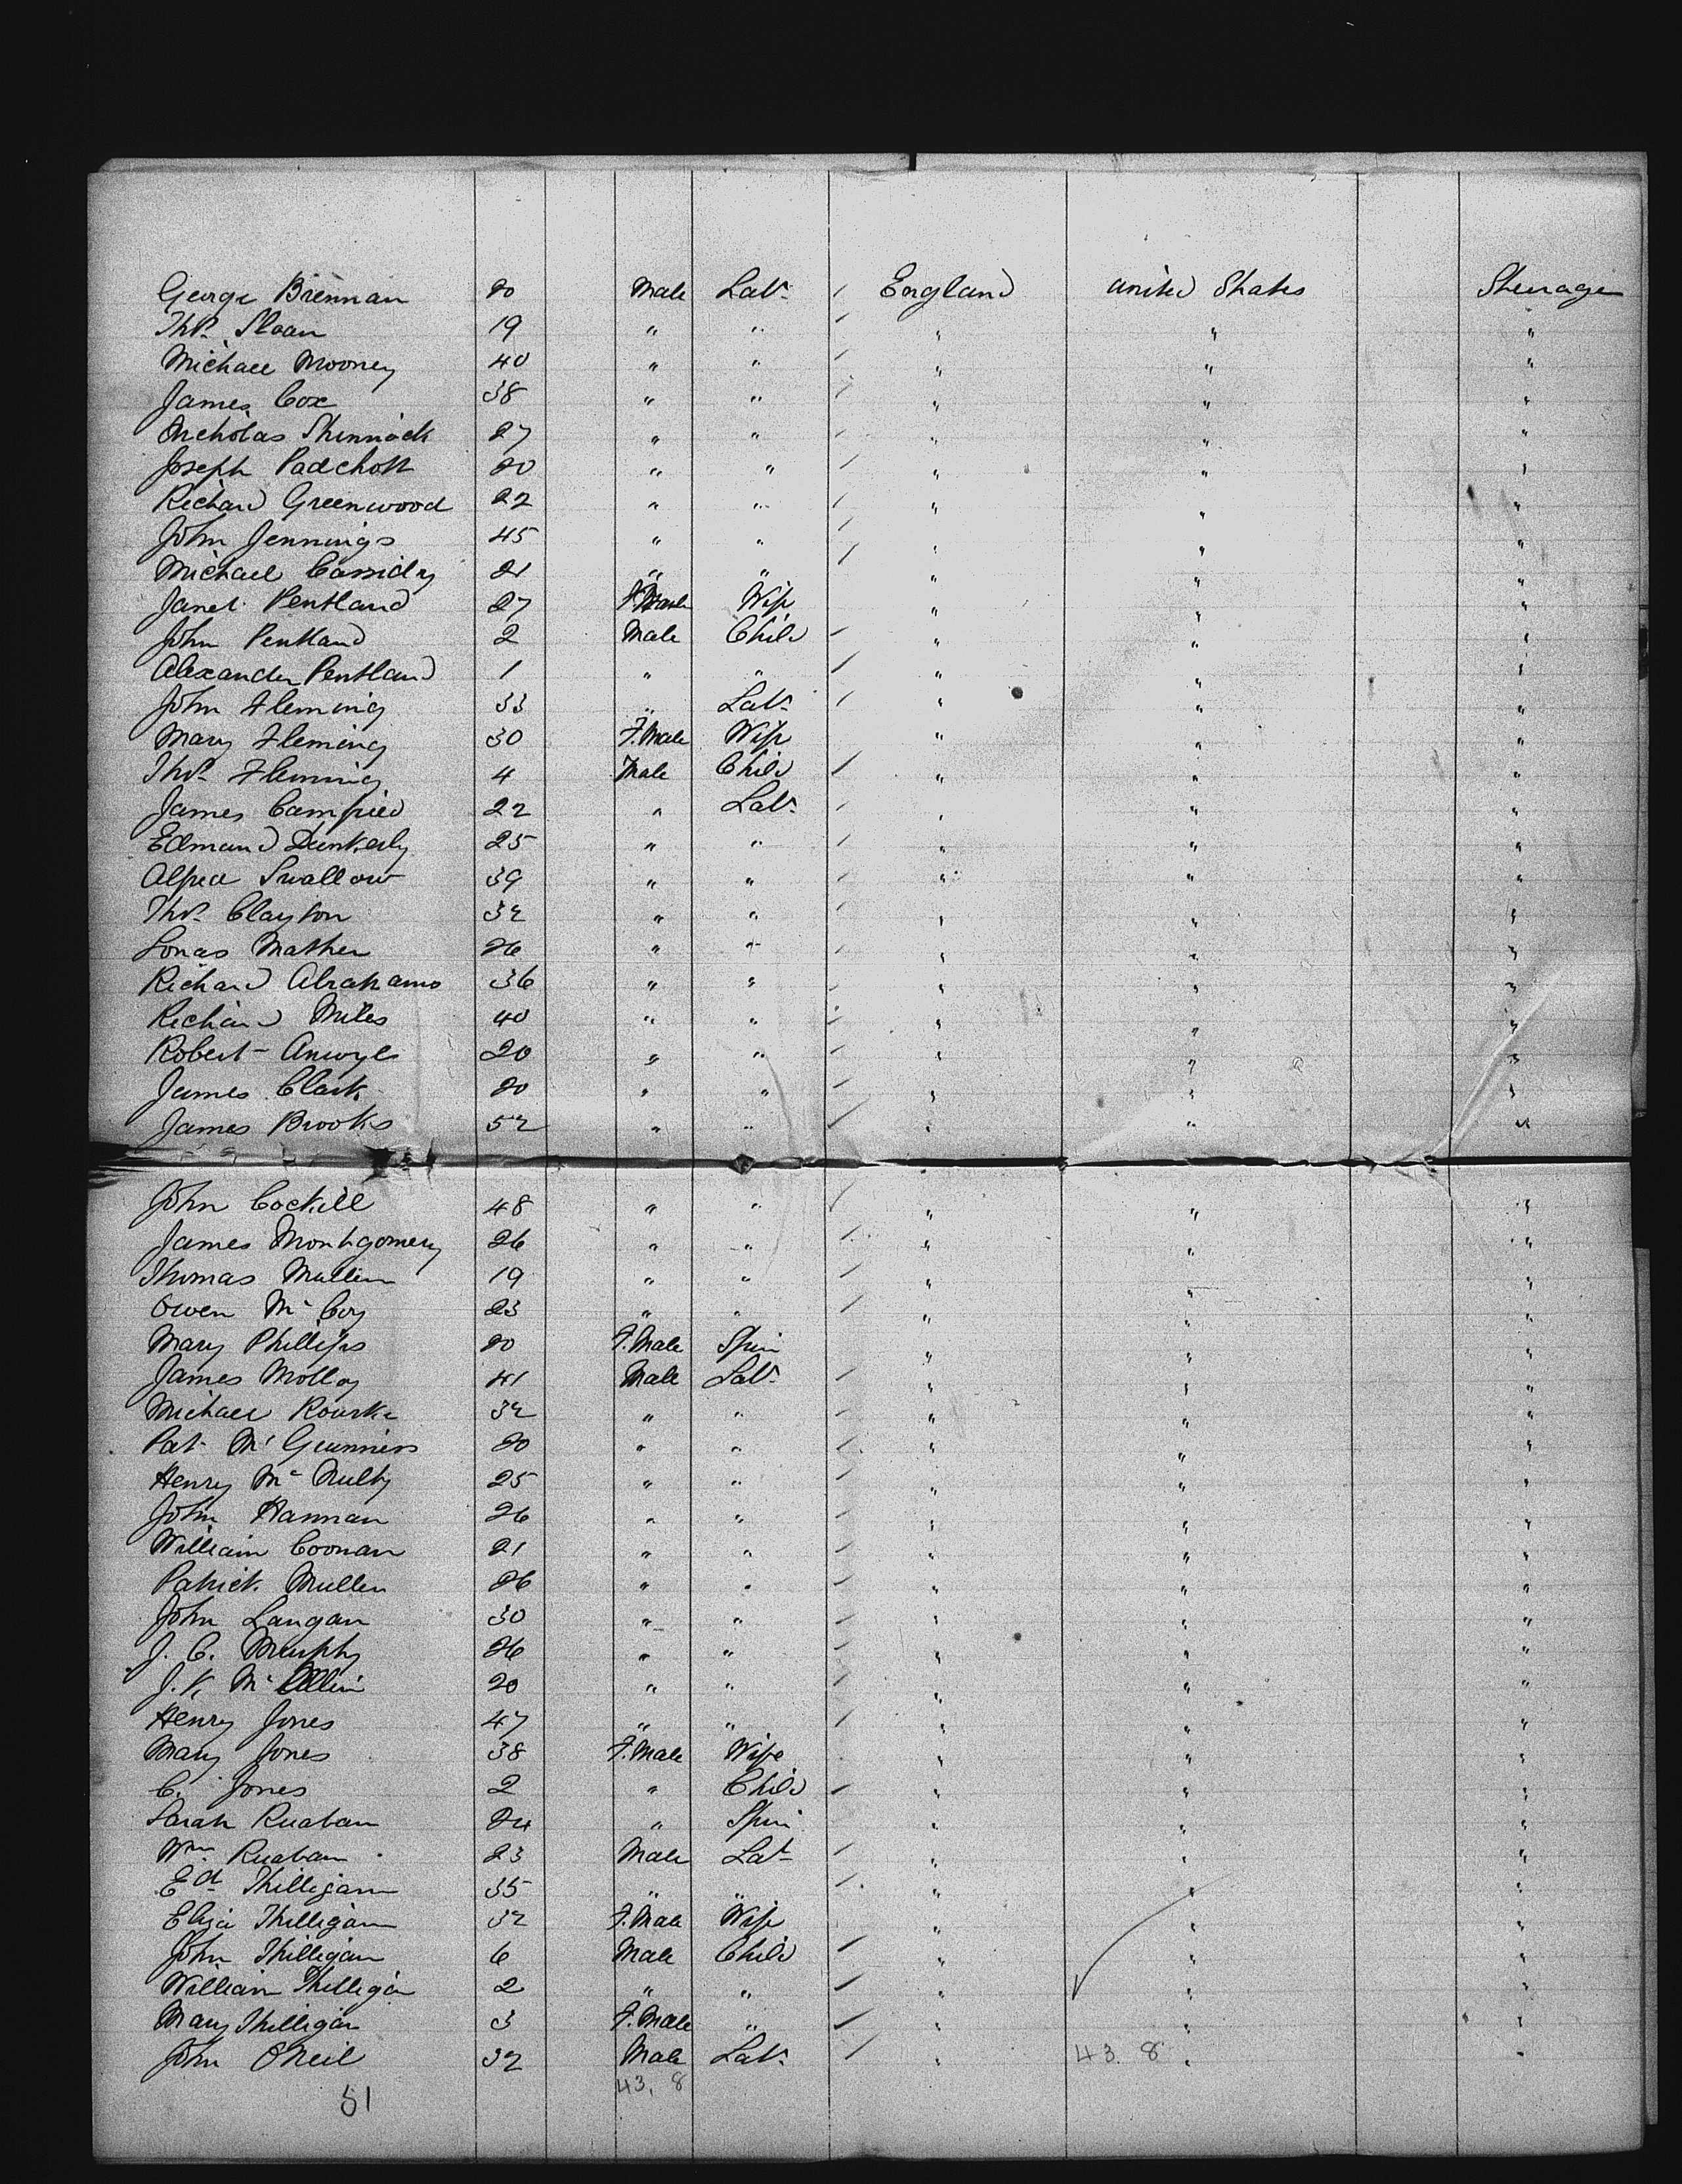 George Brennan 20 Male Labr / England United States Steerage
Thos. Sloan 19 " " / " " "
Michael Mooney 40 " " / " " "
James Cox 38 " " / " " "
Nicholas Shinnock 27 " " / " " "
Joseph Padchott 20 " " / " " "
Richard Greenwood 22 " " / " " "
John Jennings 45 " " / " " "
Michael Cassidy 21 " " / " " "
Janet Pentland 27 F.Male Wife " " "
John Pentland 2 Male Child / " " "
Alexander Pentland 1 " " / " " "
John Fleming 33 " Labr / " " "
Mary Fleming 30 F.Male Wife " " "
Thos. Fleming 4 Male Child / " " "
James Camfied 22 " Labr / " " "
Edmund Dunkerly 25 " " / " " "
Alfred Swallow 39 " " / " " "
Thos. Clayton 32 " " / " " "
Jonas Mather 26 " " / " " "
Richard Abrahams 36 " " / " " "
Richard Miles 40 " " / " " "
Robert Anwyl 20 " " / " " "
James Clark 20 " " / " " "
James Brooks 52 " " / " " "
John Cockill 48 " " / " " "
James Montgomery 26 " " / " " "
Thomas Mullin 19 " " / " " "
Owen McCoy 23 " " / " " "
Mary Phillips 20 F.Male Spin " " "
James Molloy 41 Male Labr / " " "
Michael Rourke 32 " " / " " "
Pat McGuinness 20 " " / " " "
Henry McNulty 25 " " / " " "
John Hannan 26 " " / " " "
William Coonan 21 " " / " " "
Patrick Mullen 26 " " / " " "
John Langan 30 " " / " " "
J. C. Murphy 26 " " / " " "
J. K. Mc 20 " " / " " "
Henry Jones 47 " " / " " "
Mary Jones 38 F.Male Wife " " "
C. Jones 2 " Child / " " "
Sarah Ruaban 24 " Spin " " "
Wm Ruaban 23 Male Labr / " " "
Ed Thilligan 35 " " / " " "
Eliza Thilligan 32 F.Male Wife " " "
John Thilligan 6 Male Child / " " "
William Thilligan 2 " " / " " "
Mary Thilligan 3 F.Male " / " " "
John O'Neil 32 Male Labr / " " "
43. 8
51 43. 8